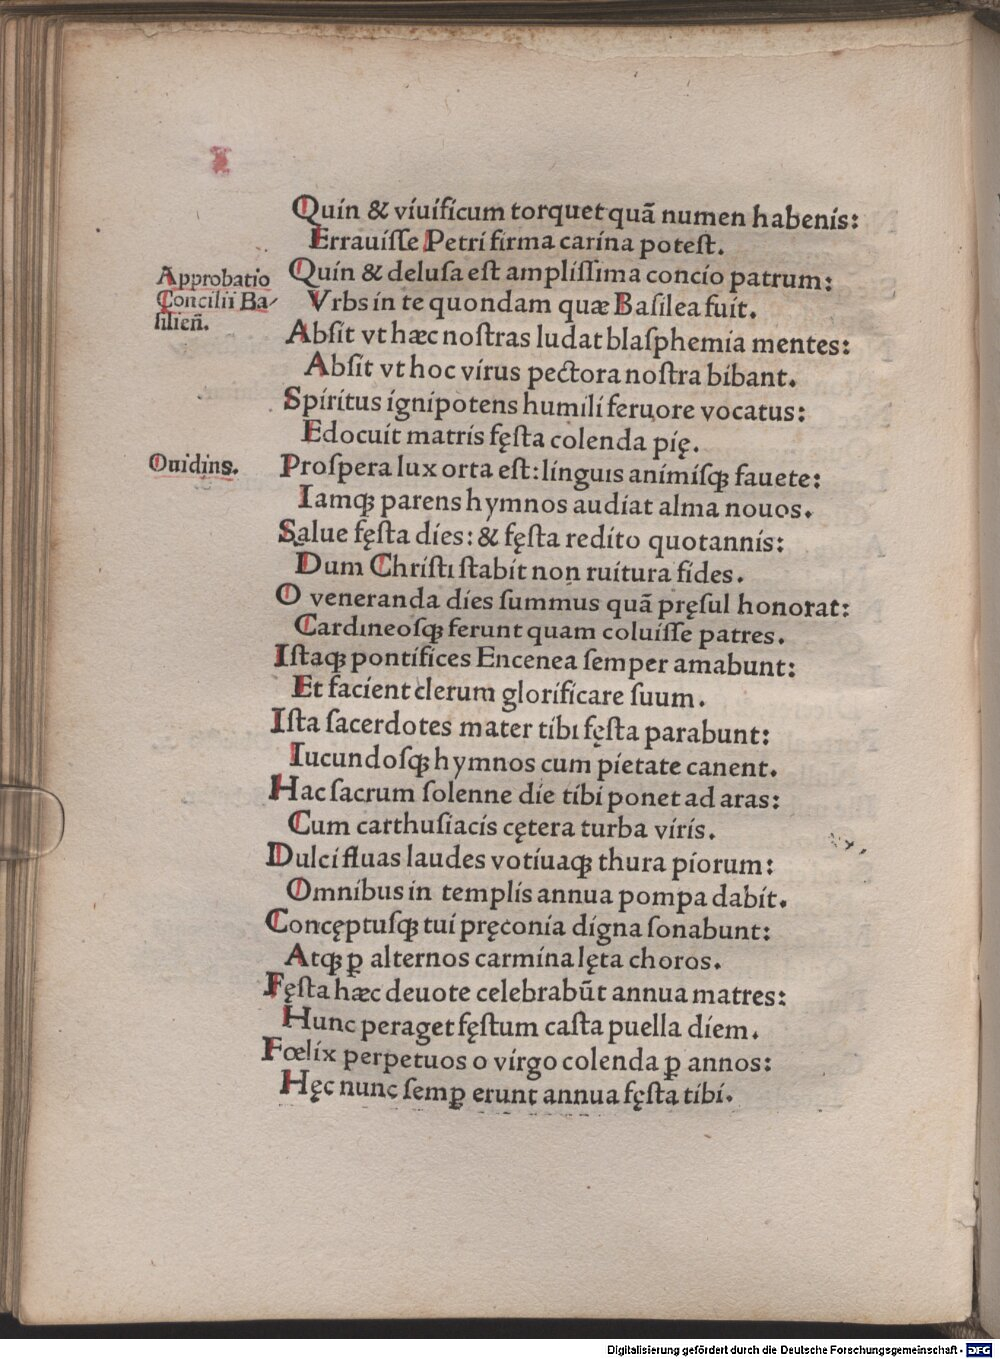 Quin & viuificum torquet quã numen habenis:
Errauisſe Petri firma carina poteſt.
Approbatio
Concilii Ba⸗
ſilieñ.
Quin & deluſa eſt ampliſſima concio patrum:
Vrbs in te quondam quæ Baſilea fuit.
Abſit vt hæc noſtras ludat blaſphemia mentes:
Abſit vt hoc virus pectora noſtra bibant.
Spiritus ignipotens humili feruore vocatus:
Edocuit matris fęſta colenda pię.
Ouidius.
Proſpera lux orta eſt: linguis animiſqꝫ fauete:
Iamqꝫ parens hymnos audiat alma nouos.
Salue fęſta dies: & fęſta redito quotannis:
Dum Chriſti ſtabit non ruitura fides.
O veneranda dies ſummus quã pręſul honorat:
Cardineoſqꝫ ferunt quam coluiſſe patres.
Iſtaqꝫ pontifices Encenea ſemper amabunt:
Et facient clerum glorificare ſuum.
Iſta ſacerdotes mater tibi fęſta parabunt:
Iucundoſqꝫ hymnos cum pietate canent.
Hac ſacrum ſolenne die tibi ponet ad aras:
Cum carthuſiacis cętera turba viris.
Dulcifluas laudes votiuaqꝫ thura piorum:
Omnibus in templis annua pompa dabit.
Concęptuſqꝫ tui pręconia digna ſonabunt:
Atqꝫ ꝑ alternos carmina lęta choros.
Fęſta hæc deuote celebrabũt annua matres:
Hunc peraget fęſtum caſta puella diem.
Fœlix perpetuos o virgo colenda ꝑ annos:
Hęc nunc ſemꝑ erunt annua fęſta tibi.
Digitalisierung gefördert durch die Deutsche Forschungsgemeinschaft - DFG